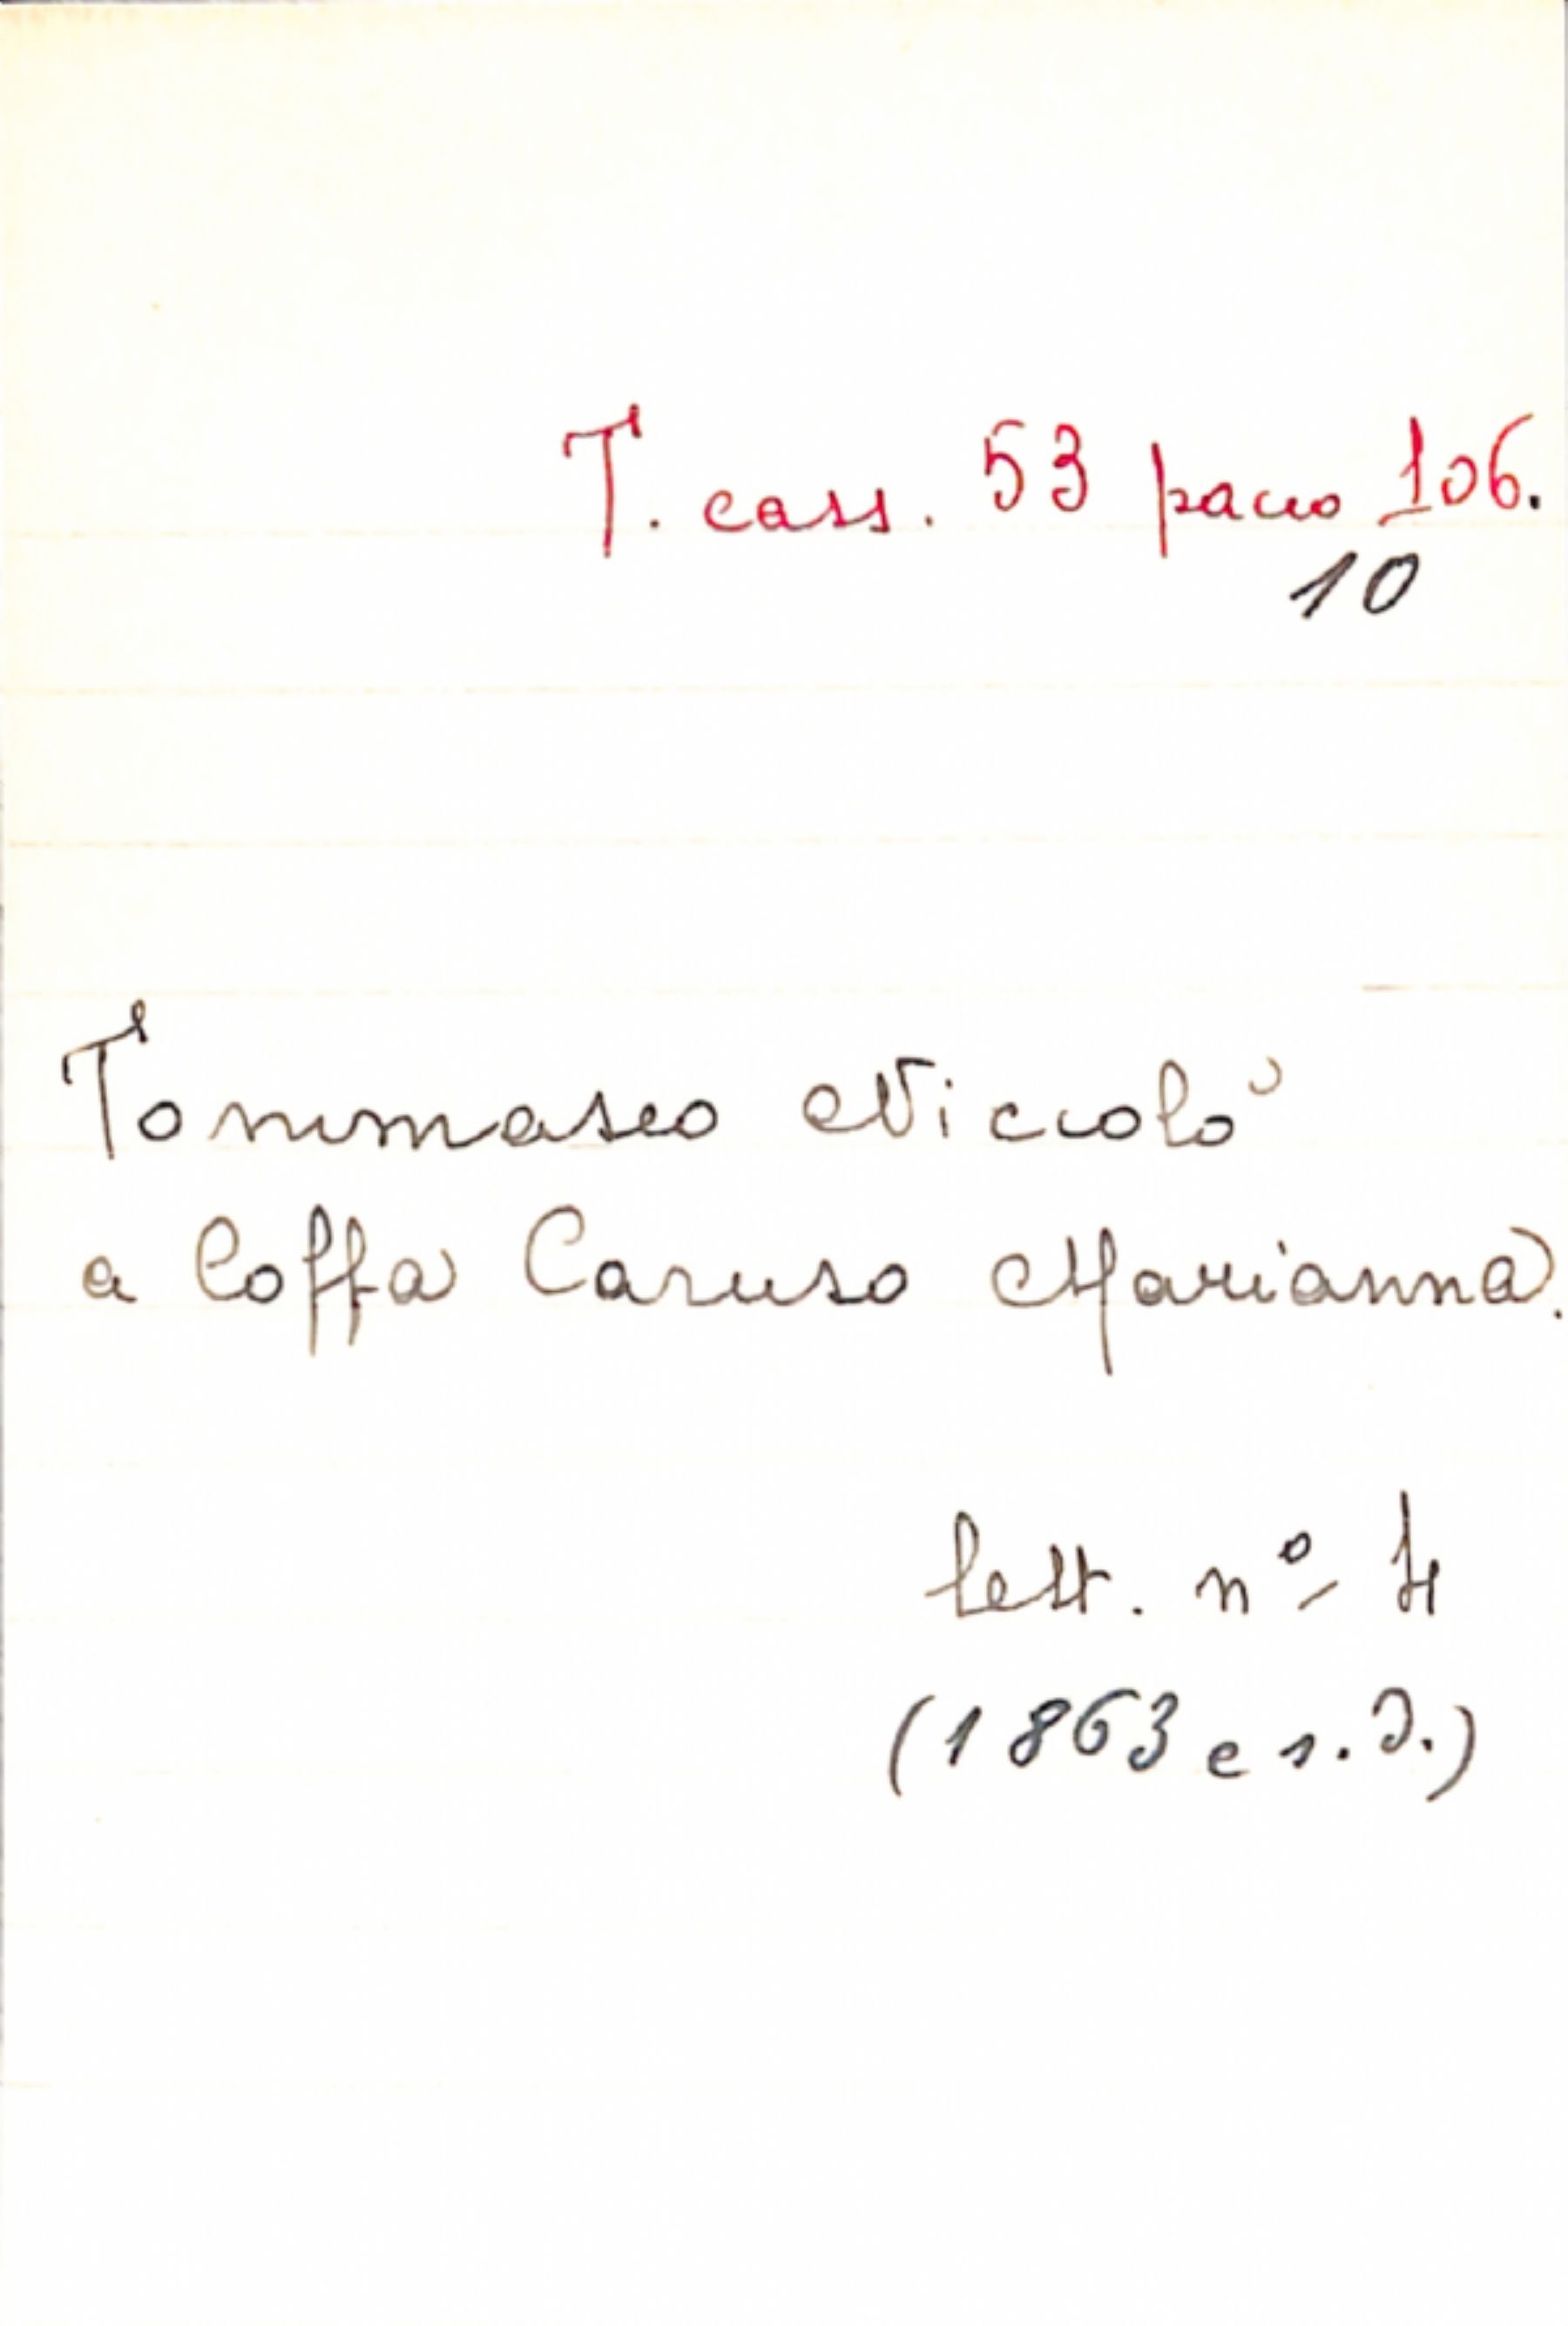 T. cass. 53 pacco 106.
10
Tommaseo Niccolò
a Coffa Caruso Marianna.
lett. nº 4
(1863 e s.d.)